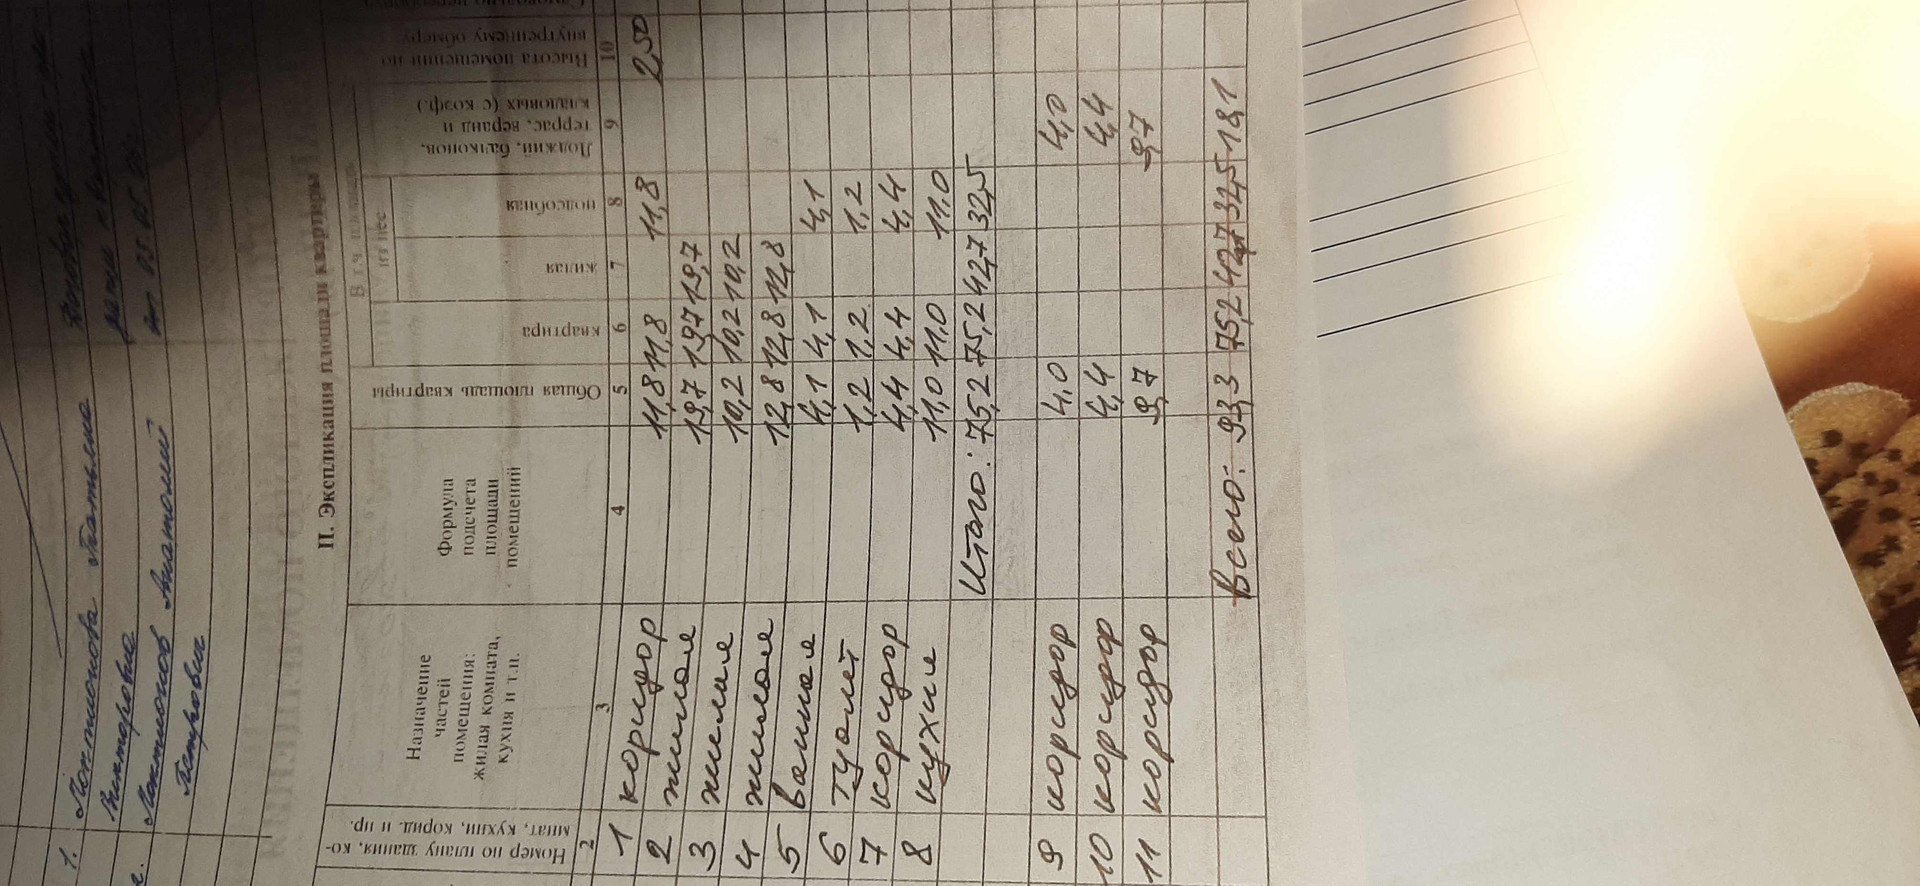 1. Локтионова Татьяна
Викторовна
Локтионов Анатолий
Петрович
II. Экспликация площади квартиры
Номер по плану здания, ко-
мнат, кухни, корид. и пр.
Назначение
частей
помещения:
жилая комната,
кухня и т.п.
Формула
подсчета
площади
помещений
Общая площадь квартиры
В т.ч. площадь
из нее
квартира
жилая
подсобная
Лоджий, балконов,
террас, веранд и
кладовых (с коэф.)
Высота помещений по
внутреннему обмеру
2 3 4 5 6 7 8 9 10
1 коридор 11,8 11,8 11,8 2,50
2 жилая 19,7 19,7 19,7
3 жилая 10,2 10,2 10,2
4 жилая 12,8 12,8 12,8
5 ванная 4,1 4,1 4,1
6 туалет 1,2 1,2 1,2
7 коридор 4,4 4,4 4,4
8 кухня 11,0 11,0 11,0
Итого: 75,2 75,2 42,7 32,5
9 коридор 4,0 4,0
10 коридор 4,4 4,4
11 коридор 9,7 9,7
Всего: 93,3 75,2 42,7 32,5 18,1